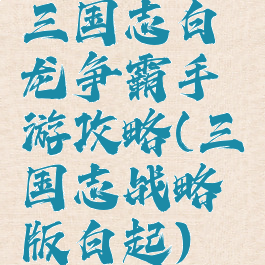 三国志白
龙争霸手
游攻略(三
国志战略
版白起)